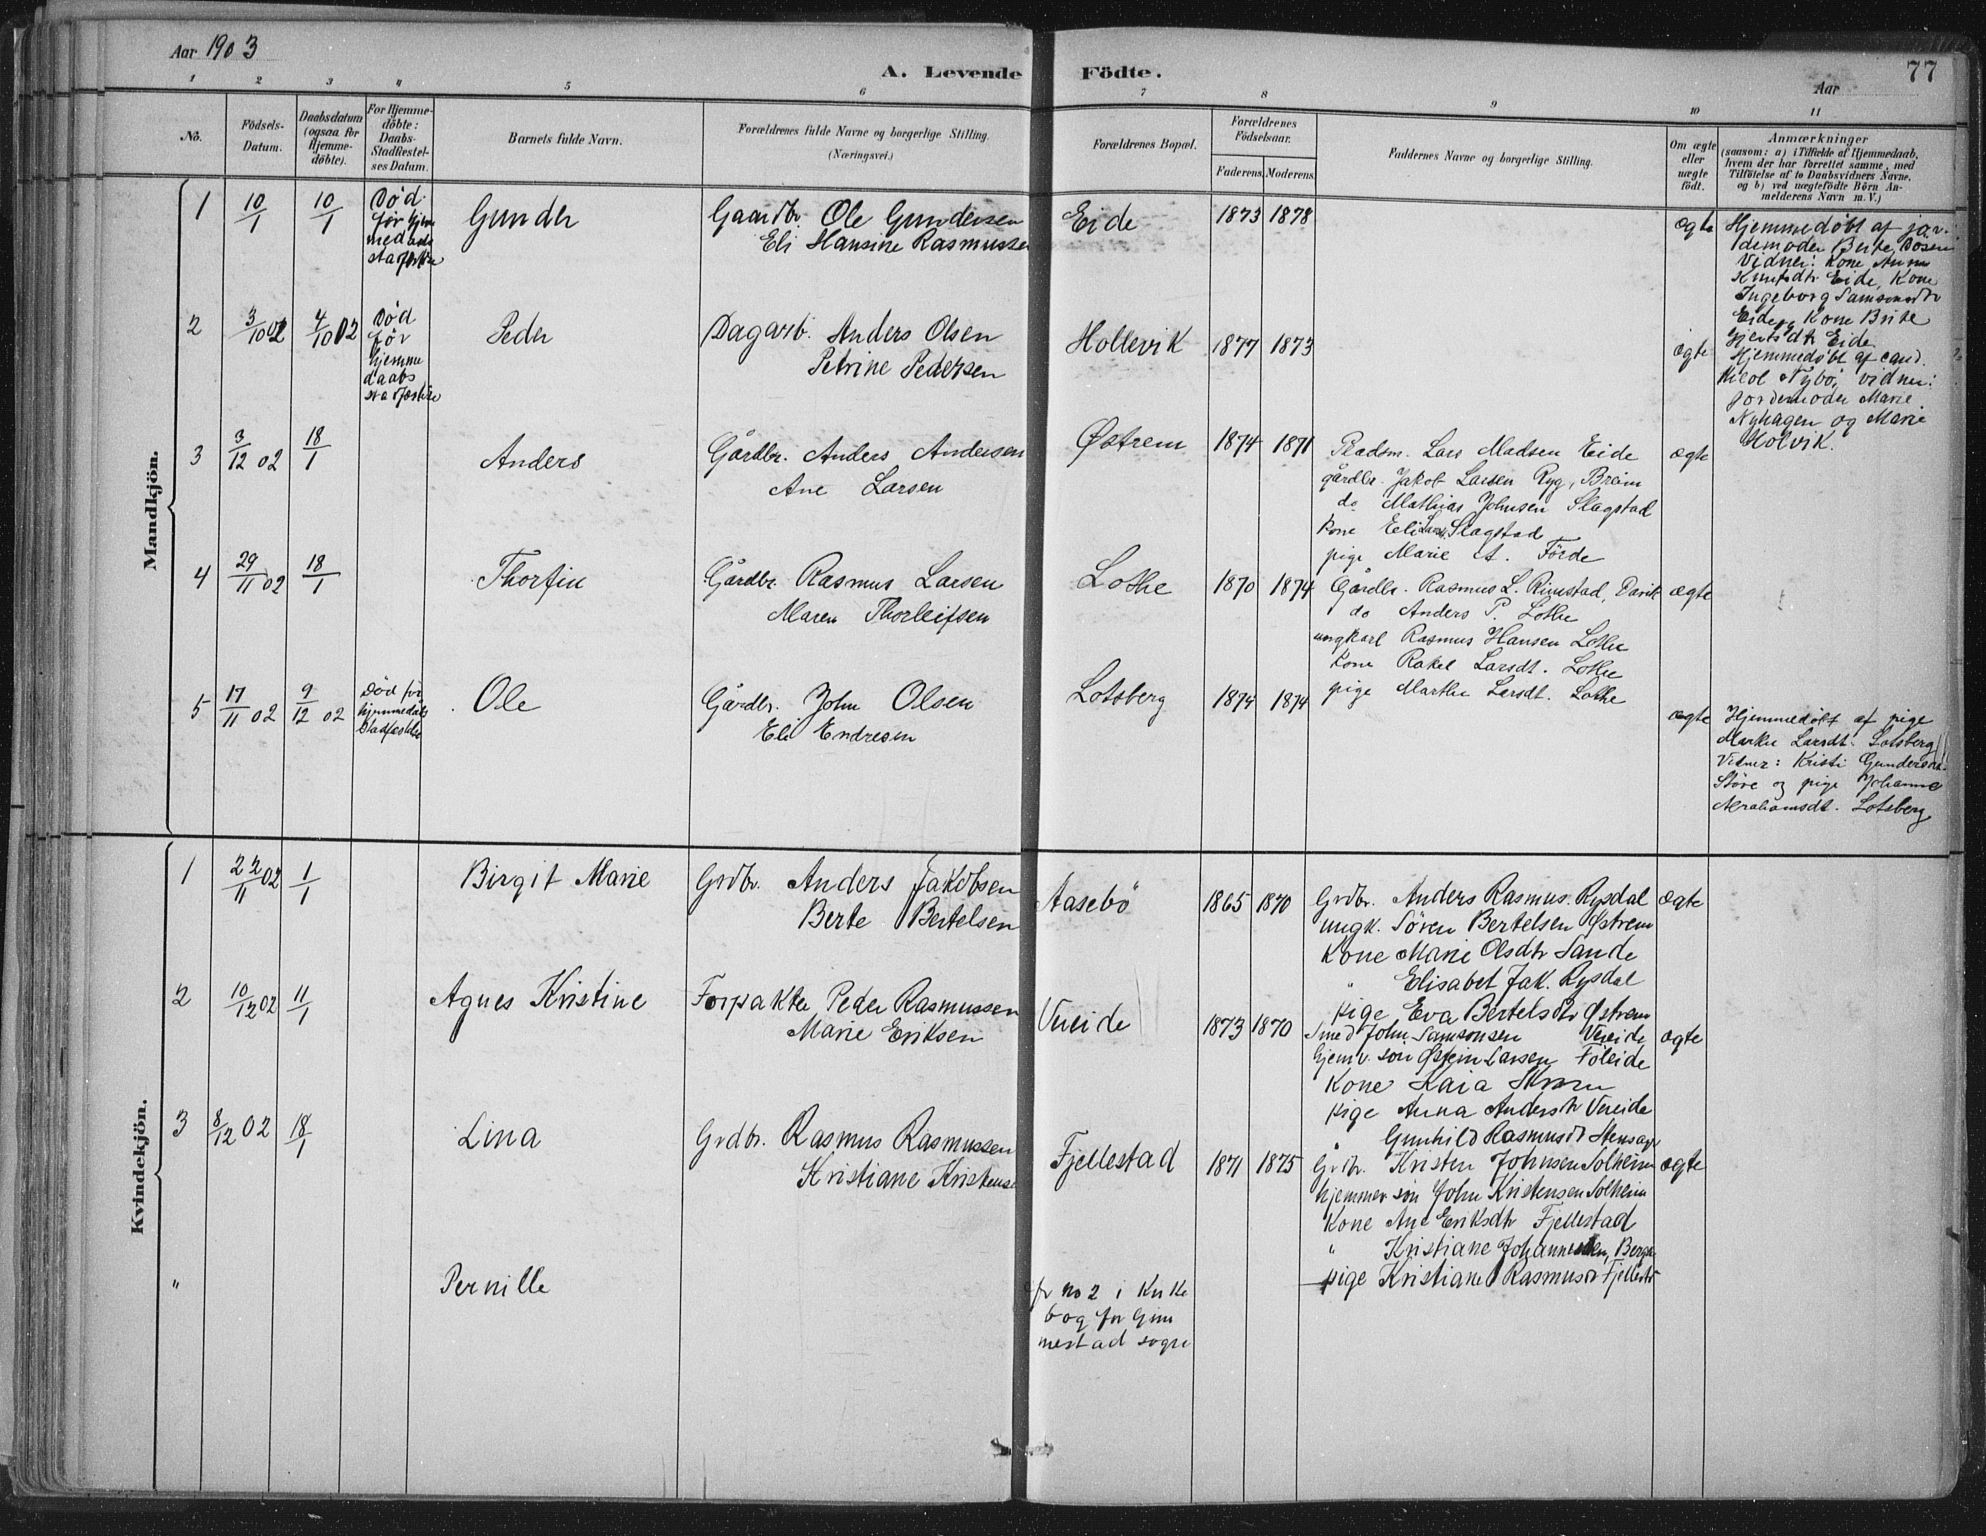 Aar 1903
A. Levende Födte.
77
Aar
1 2 3 4 5 6 7 8 9 10 11
No.
Födsels-Datum.
Daabsdatum (ogsaa for Hjemmedöbte).
For Hjemmedöbte: Daabs-Stadfæstelses Datum.
Barnets fulde Navn.
Forældrenes fulde Navne og borgerlige Stilling.
(Næringsvei.)
Forældrenes Bopæl.
Forældrenes Födselsaar.
Faderens. Moderens.
Faddernes Navne og borgerlige Stilling.
Om ægte eller uægte födt.
Anmærkninger
(saasom: a) i Tilfælde af Hjemmedaab, hvem der har forrettet samme, med Tilföielse af to Daabsvidners Navne, og b) ved uægtefödte Börn Anmelderens Navn m. V.)
Mandkjön.
1 10/1 10/1
Død før hjemmedaabs
Gunder
Gaardbr. Ole Gundersen
Eli Hansine Rasmussen
Eide
1873 1878
ægte
Hjemmedøbt af jordemoder Berte
Vidner: Kone Anna
Knutsdtr Eide, Kone
Ingeborg Samsonsdtr
Eide, Kone Brite
Gjertsdtr Eide
2 3/10 02 4/10 02
Død før hjemmedaabs
Peder
Dagarb. Anders Olsen
Petrine Pedersen
Hollevik
1877 1873
ægte
Hjemmedøbt af cand.
Nybø, vidner:
jordemoder Marie
Nyhagen og Marie
Holvik.
3 3/12 02 18/1
Anders
Gårdbr. Anders Andersen
Ane Larsen
Østrem
1874 1871
Pladsm. Lars Madsen Eide
gårdbr. Jakob Larsen Ryg, Breim
do Mathias Johnsen Slagstad
kone Eli Slagstad
pige Marie A. Förde
ægte
4 29/11 02 18/1
Thorfin
Gårdbr. Rasmus Larsen
Maren Thorleifsen
Lothe
1870 1874
Gårdbr. Rasmus L. Rimstad, Davik
do Anders P. Lothe
ungkarl Rasmus Hansen Lothe
Kone Rakel Larsdt. Lothe
pige Marthe Larsdt. Lothe
ægte
5 17/11 02 9/12 02
Død før hjemmedaabs
Ole
Gårdbr. John Olsen
Eli Endresen
Lotsberg
1874 1874
ægte
Hjemmedøbt af pige
Marthe Larsdt. Lotsberg
Vidner: Kristi Gundersdt.
Støve og pige Johanne
Abrahamsdt. Lotsberg
Kvindekjön.
1 22/11 02 1/1
Birgit Marie
Grdbr. Anders Jakobsen
Berte Bertelsen
Aasebö
1865 1870
Grdbr. Anders Rasmus. Rysdal
ungk. Sören Bertelsen Østrem
Kone Marie Olsdtr Sande
" Elisabet Jak. Rysdal
pige Eva Bertelsdtr Østrem
ægte
2 10/12 02 11/1
Agnes Kristine
Forpakter Peder Rasmussen
Marie Eriksen
Vereide
1873 1870
Smed John Samsonsen Vereide
hjemv. søn Østein Larsen Föleide
Kone Kaia
pige Anna Andersdtr Vereide
" Gunhild Rasmusdtr
ægte
3 8/12 02 18/1
Lina
Grdbr. Rasmus Rasmussen
Kristiane Kristensen
Fjellestad
1871 1875
Grdbr. Kristen Johnsen Solheim
hjemmev søn John Kristensen Solheim
Kone Ane Eriksdtr Fjellestad
" Kristiane Johannesen, Berge
pige Kristiane Rasmusdtr Fjellestad
ægte
"
Pernille
cfr no 2 i Kirke
bog for Gim
mestad sogn